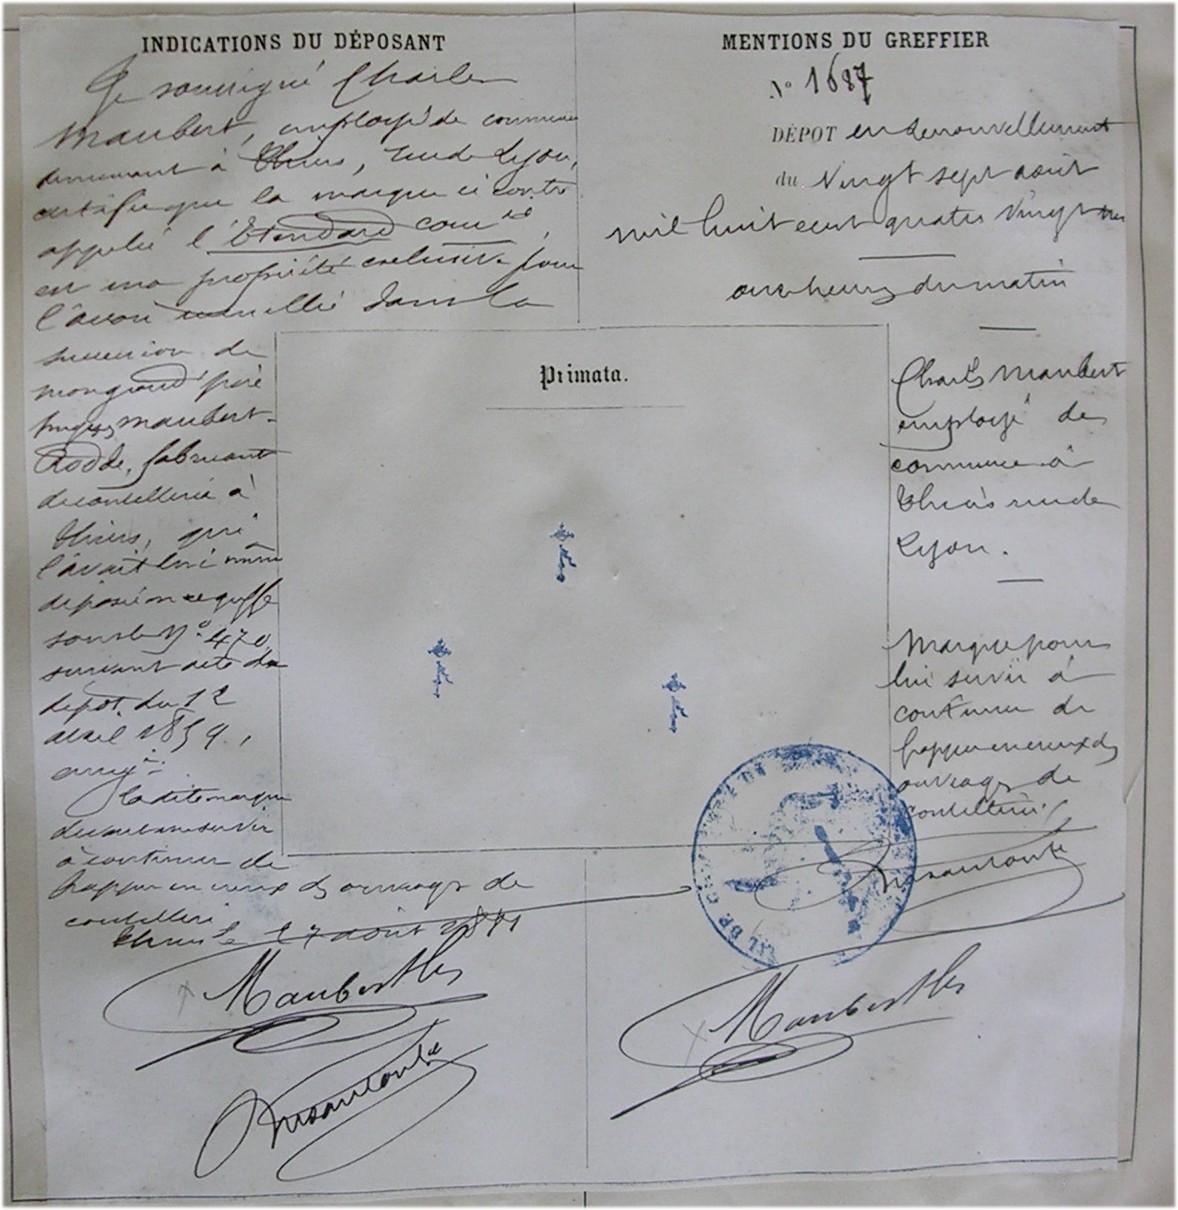 INDICATIONS DU DÉPOSANT
Je soussigné Charles
Maubert, employé de commerce
demeurant à Thiers, rue de Lyon,
certifie que la marque ci contre
appelée l'Etendard
est ma propriété exclusive pour
l'avoir recueillie dans la
succession de
mon grand père
Maubert-
Rodde, fabricant
de coutellerie à
Thiers, qui
l'avait lui même
déposée au greffe
sous le N° 470
suivant acte de
dépôt du 12
avril 1859,
enreg.
La dite marque
devant me servir
à continuer de
frapper en creux des ouvrages de
coutellerie
Thiers le 27 août
Maubert Ches
MENTIONS DU GREFFIER
N° 1687
DÉPOT en renouvellement
du Vingt sept août
mil huit cent quatre vingt
onze heures du matin
Primata.
Charles Maubert
employé de
commerce à
Thiers rue de
Lyon.
Marque pour
lui servir à
continuer de
frapper en creux des
ouvrages de
coutellerie
Maubert Ches